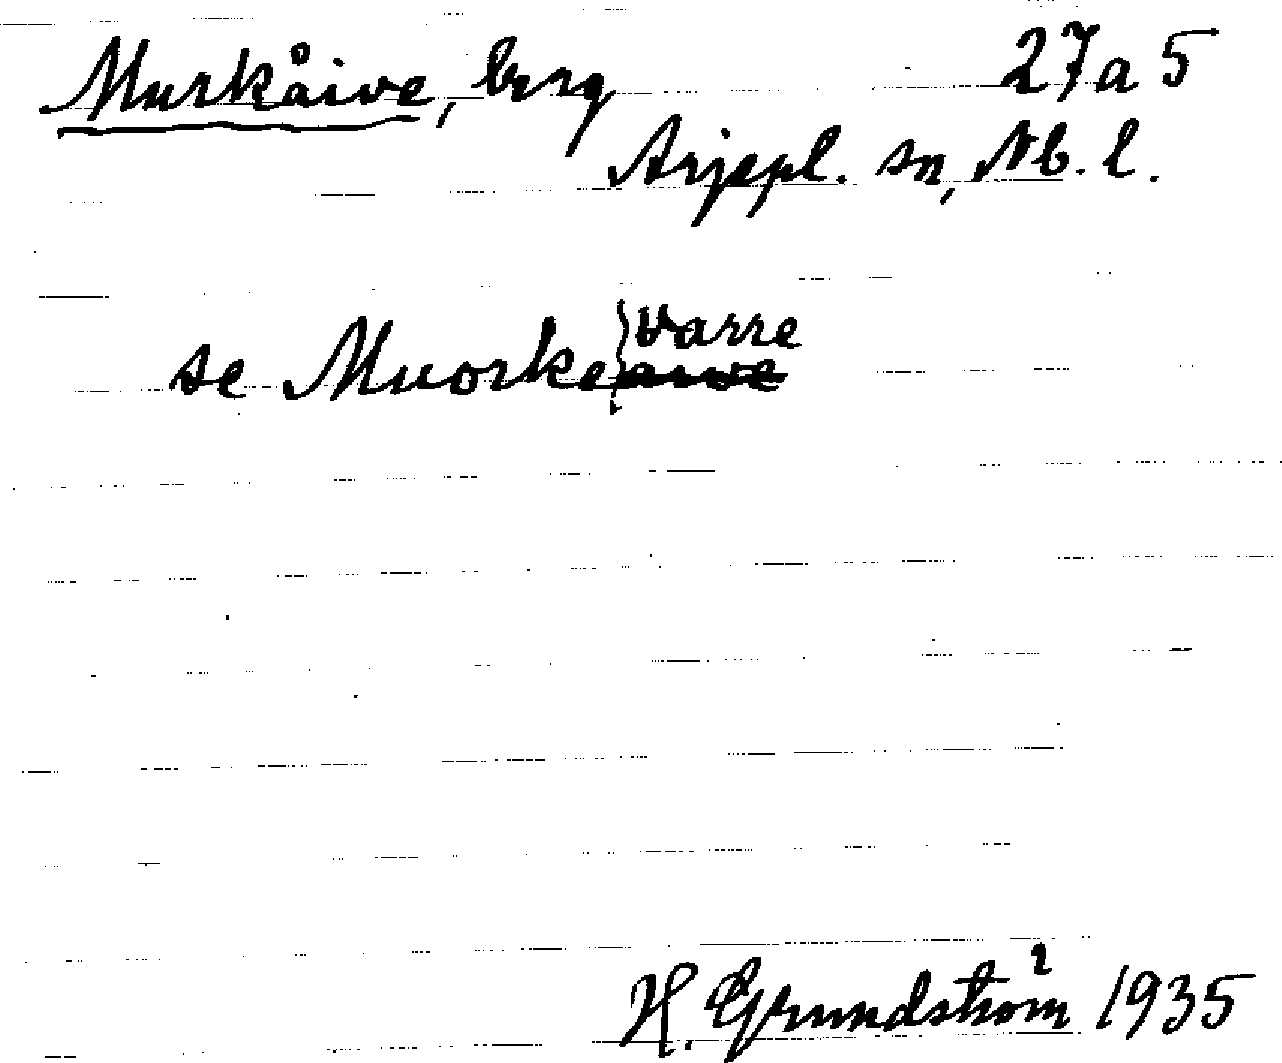 Murkåive, berg 27a5
Arjepl. sn, Nb. l.
se Muorkevarre
H. Grundström 1935